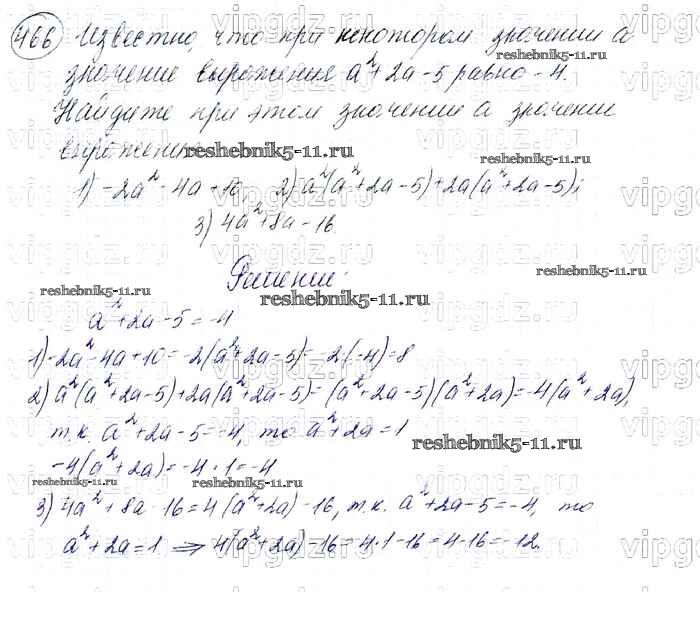 466 Известно, что при некотором значении a
значение выражения a²+2a-5 равно -4.
Найдите при этом значении a значение
выражения
reshebnik5-11.ru
1) -2a²-4a+10, 2) a²(a²+2a-5)+2a(a²+2a-5);
3) 4a²+8a-16.
Решение:
a²+2a-5=-4
1) -2a²-4a+10=-2(a²+2a-5)=-2(-4)=8
2) a²(a²+2a-5)+2a(a²+2a-5)=(a²+2a-5)(a²+2a)=-4(a²+2a),
т.к. a²+2a-5=-4, то a²+2a=1
-4(a²+2a)=-4·1=-4
3) 4a²+8a-16=4(a²+2a)-16, т.к. a²+2a-5=-4, то
a²+2a=1 ⇒ 4(a²+2a)-16=4·1-16=4-16=-12.